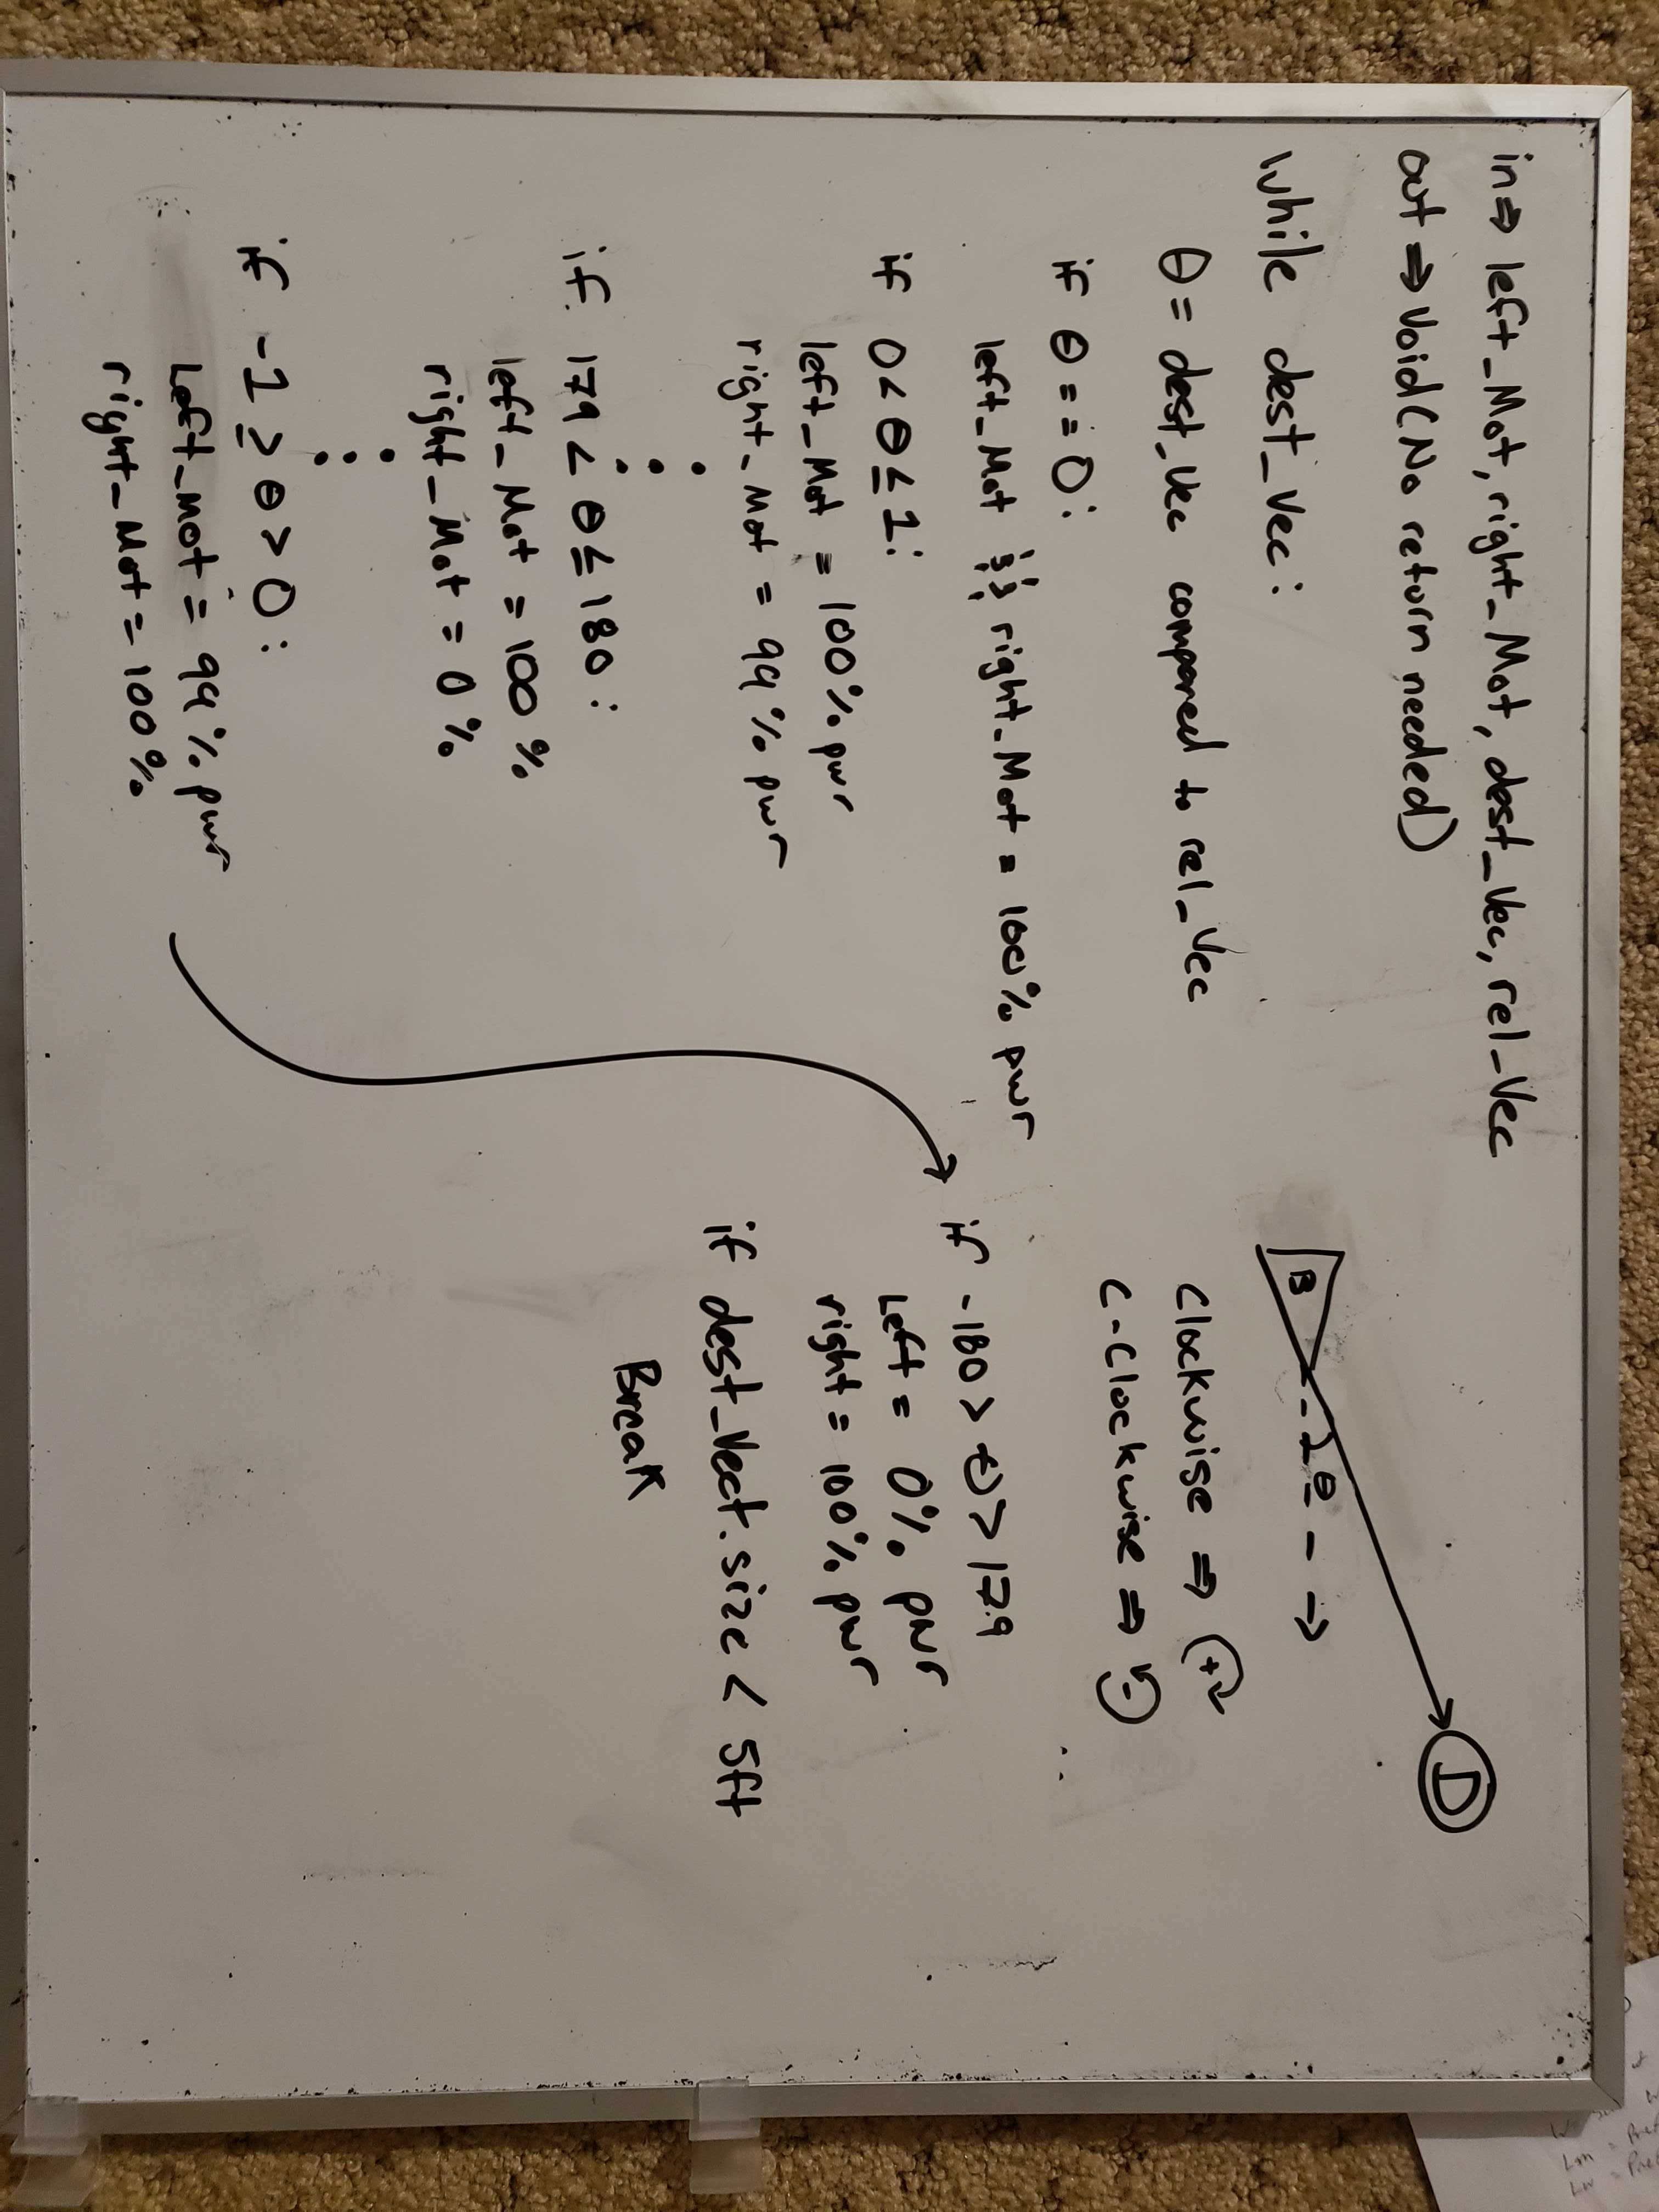 in⇒ left_Mot, right_Mot, dest_Vec, rel_Vec
out ⇒ Void (No return needed)
while dest_vec:
θ = dest_vec compared to rel_Vec
if θ == 0:
left_Mot && right_Mot = 100% pwr
if 0 < θ ≤ 1:
left_Mot = 100% pwr
right_Mot = 99% pwr
if 179 < θ ≤ 180:
left_Mot = 100 %
right_Mot = 0 %
if -1 ≥ θ > 0:
Left_mot = 99% pwr
right_Mot = 100%
D
B
θ
Clockwise ⇒ +
C-Clockwise ⇒ -
if -180 > θ > 179
Left = 0% pwr
right = 100% pwr
if dest_Vect.size < 5ft
Break